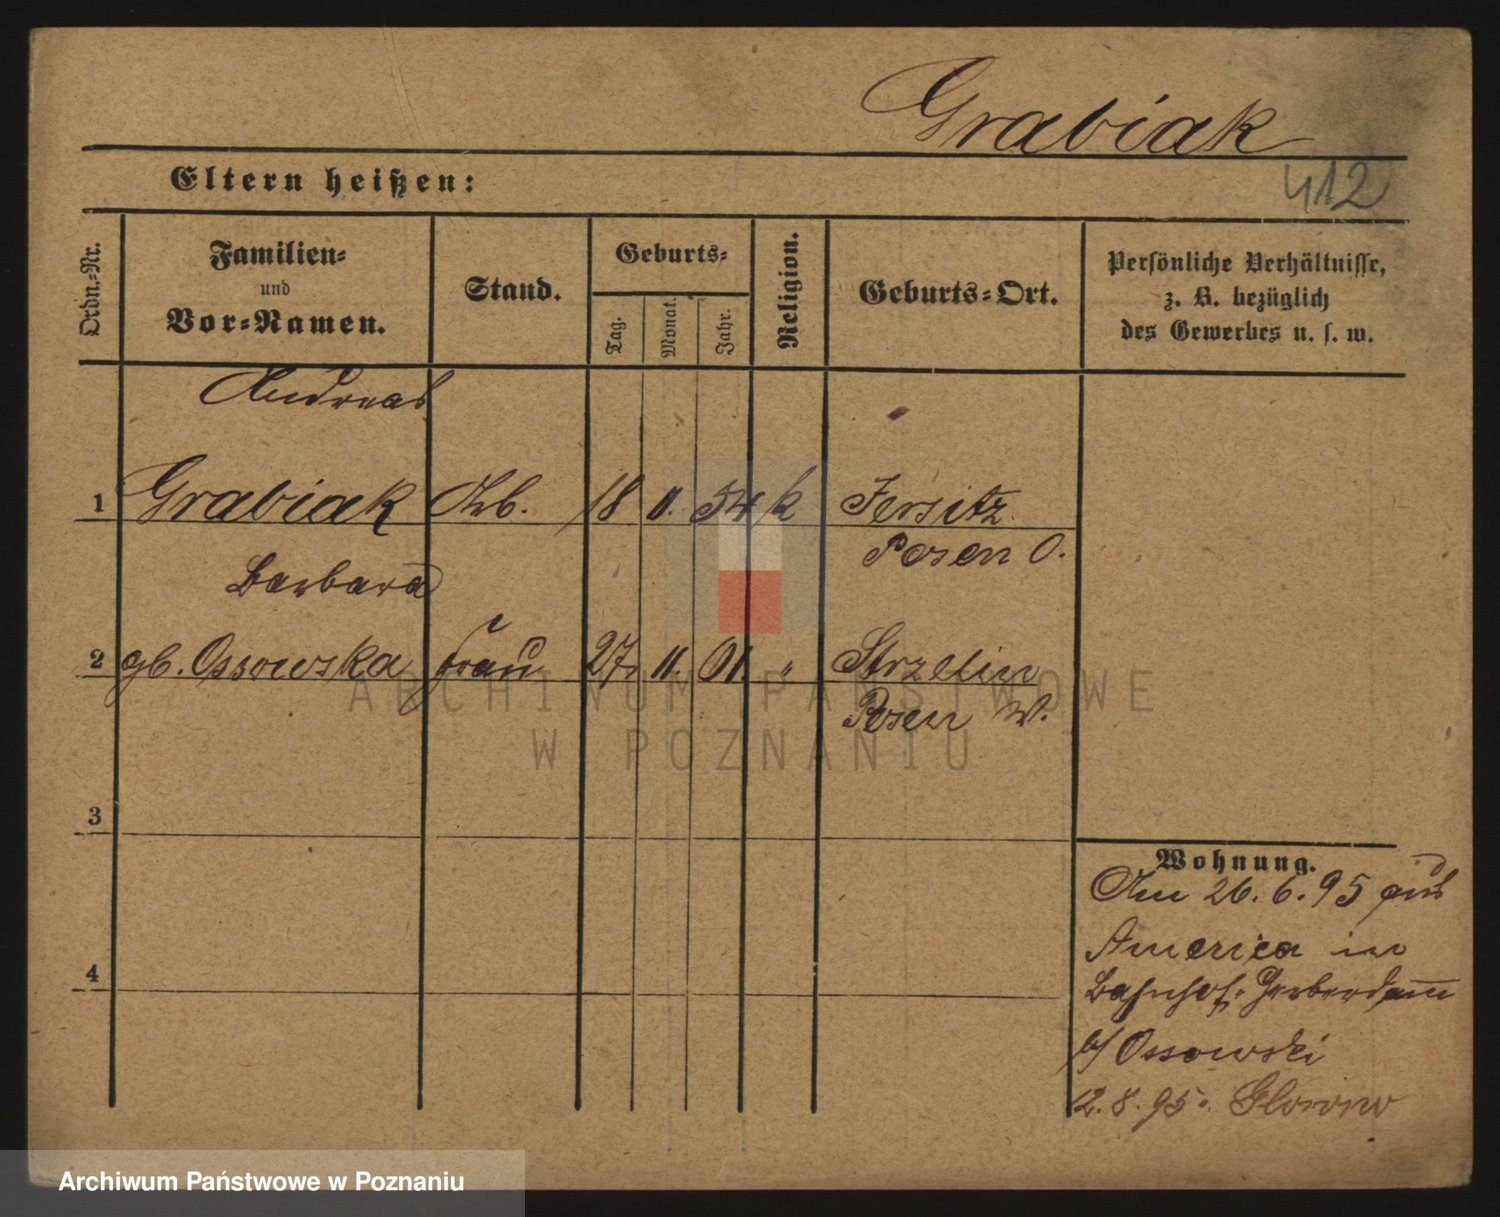 Grabiak
412
Eltern heißen:
Ordn.-Nr.
Familien-
und
Vor-Namen.
Stand.
Geburts-
Tag.
Monat.
Jahr.
Religion.
Geburts-Ort.
Persönliche Verhältnisse,
z. B. bezüglich
des Gewerbes u. s. w.
Andreas
1 Grabiak Arb. 18 11. 54 k Jersitz
Posen O.
Barbara
2 gb. Ossowska Frau 27. 11. 61. " Strzelin
Posen W.
3
4
Wohnung.
Am 26. 6. 95 aus
America in
Bahnhof. Gerberdamm
b/ Ossowski
12. 8. 95.
ARCHIWUM PAŃSTWOWE
W POZNANIU
Archiwum Państwowe w Poznaniu